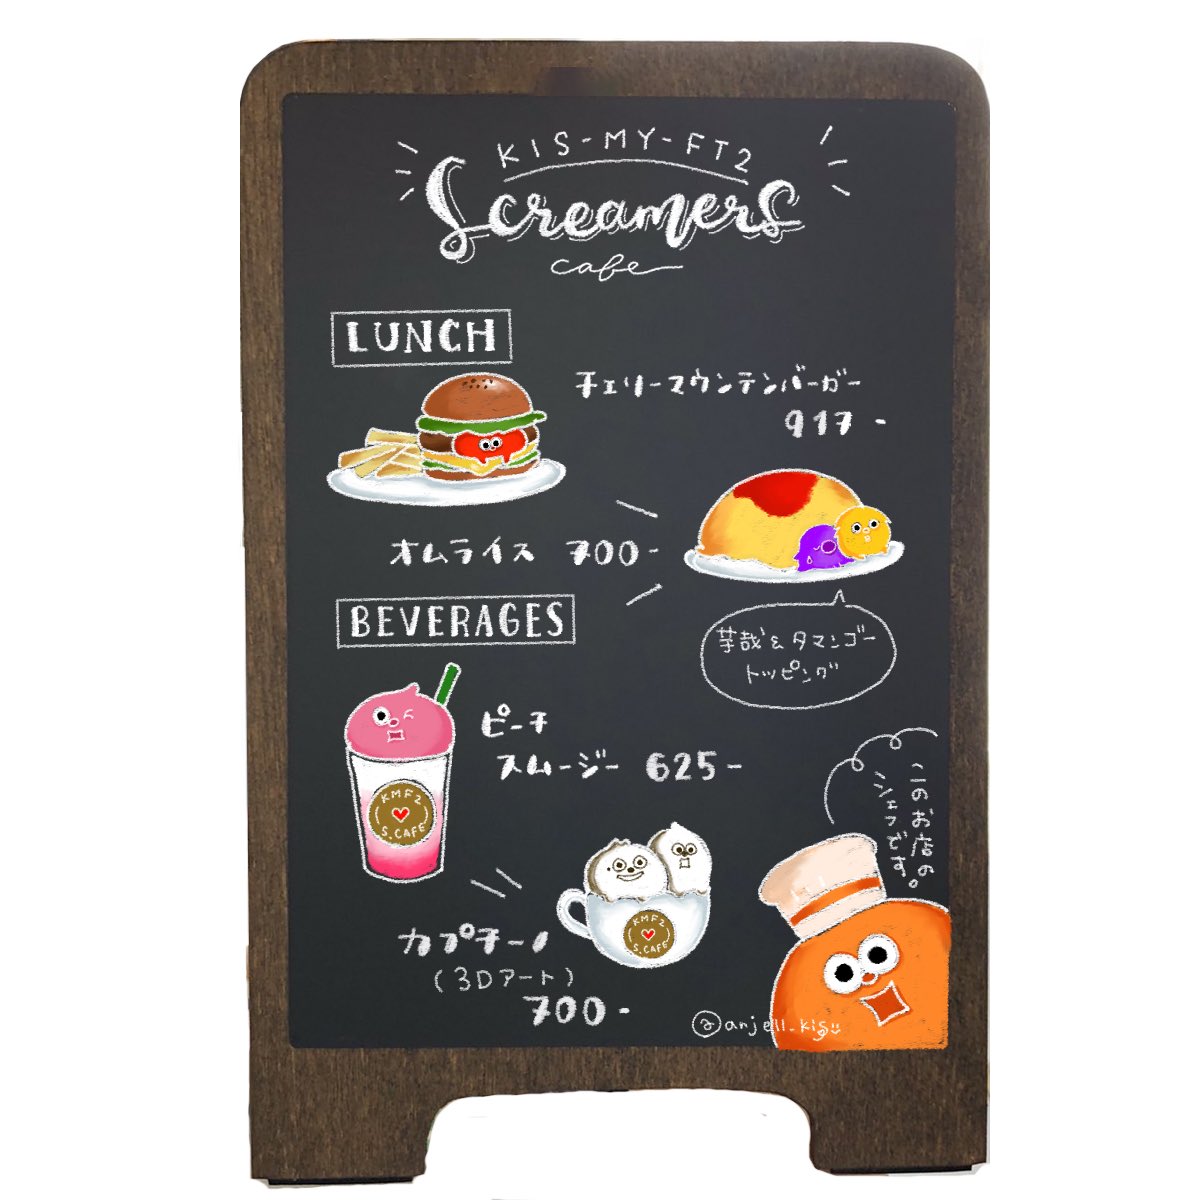 KIS-MY-FT2
Screamers
cafe
LUNCH
チェリーマウンテンバーガー
917-
オムライス 700-
芋哉&タマンゴー
トッピング
BEVERAGES
ピーチ
スムージー 625-
KMF2
S.CAFE
カプチーノ
(3Dアート)
700-
KMF2
S.CAFE
このお店の
シェフです。
@anjell_kis